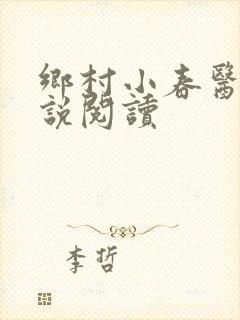 鄉村小春醫
說閱讀
李哲